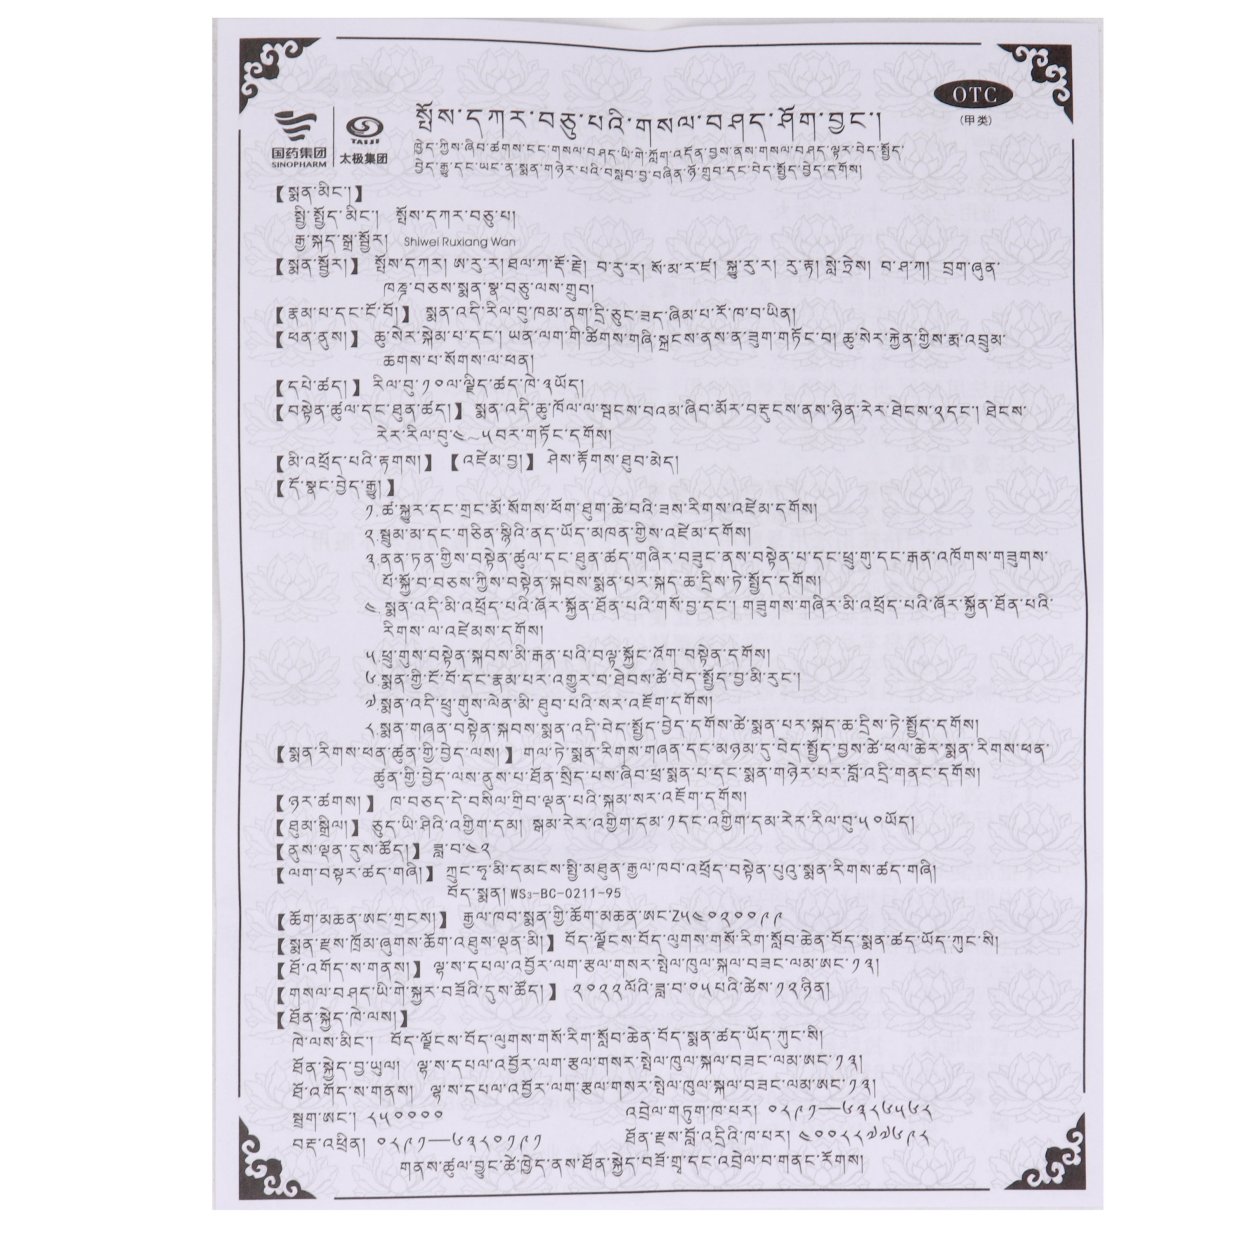 OTC
(甲类)
国药集团
SINOPHARM
TAIJI
太极集团
སྤོས་དཀར་བཅུ་པའི་གསལ་བཤད་ཤོག་བྱང་།
ཁྱེད་ཀྱིས་ཞིབ་ཚགས་ངང་གསལ་བཤད་ཡི་གེ་ཀློག་འདོན་བྱས་ནས་གསལ་བཤད་ལྟར་བེད་སྤྱོད་
བྱེད་རྒྱུ་དང་ཡང་ན་སྨན་གཉེར་པའི་བསླབ་བྱ་བཞིན་ཉོ་གྲུབ་དང་བེད་སྤྱོད་བྱེད་དགོས།
【སྨན་མིང་།】
སྤྱི་སྤྱོད་མིང་། སྤོས་དཀར་བཅུ་པ།
རྒྱ་སྐད་སྒྲ་སྦྱོར། Shiwei Ruxiang Wan
【སྨན་སྦྱོར།】 སྤོས་དཀར། ཨ་རུ་ར། ཐལ་ཀ་རྡོ་རྗེ། བ་རུ་ར། སོ་མ་ར་ཛ། སྐྱུ་རུ་ར། རུ་རྟ། སླེ་ཏྲེས། བ་ཤ་ཀ། བྲག་ཞུན་
ཁཎྜ་བཅས་སྨན་སྣ་བཅུ་ལས་གྲུབ།
【རྣམ་པ་དང་ངོ་བོ།】 སྨན་འདི་རིལ་བུ་ཁམ་ནག་དྲི་ཅུང་ཟད་ཞིམ་པ་རོ་ཁ་བ་ཡིན།
【ཕན་ནུས།】 ཆུ་སེར་སྐེམ་པ་དང་། ཡན་ལག་གི་ཚིགས་གཞི་སྐྲངས་ནས་ན་ཟུག་གཏོང་བ། ཆུ་སེར་རྐྱེན་གྱིས་རྨ་འབྲུམ་
ཆགས་པ་སོགས་ལ་ཕན།
【དཔེ་ཚད།】 རིལ་བུ་༡༠ལ་ལྗིད་ཚད་ཁེ་༣ཡོད།
【བསྟེན་ཚུལ་དང་ཐུན་ཚད།】 སྨན་འདི་ཆུ་ཁོལ་ལ་སྦངས་བའམ་ཞིབ་མོར་བརྡུངས་ནས་ཉིན་རེར་ཐེངས་༢དང་། ཐེངས་
རེར་རིལ་བུ་༤~༥བར་གཏོང་དགོས།
【མི་འཕྲོད་པའི་རྟགས།】【འཛེམ་བྱ།】 ཤེས་རྟོགས་ཐུབ་མེད།
【དོ་སྣང་བྱེད་རྒྱུ།】
༡.ཚ་སྐྱུར་དང་གྲང་མོ་སོགས་ཕོག་ཐུག་ཆེ་བའི་ཟས་རིགས་འཛེམ་དགོས།
༢.སྦྲུམ་མ་དང་གཅིན་སྙིའི་ནད་ཡོད་མཁན་གྱིས་འཛེམ་དགོས།
༣.ནན་ཏན་གྱིས་བསྟེན་ཚུལ་དང་ཐུན་ཚད་གཞིར་བཟུང་ནས་བསྟེན་པ་དང་ཕྲུ་གུ་དང་རྒན་འཁོགས་གཟུགས་
པོ་སྐྱོ་བ་བཅས་ཀྱིས་བསྟེན་སྐབས་སྨན་པར་སྐད་ཆ་དྲིས་ཏེ་སྤྱོད་དགོས།
༤.སྨན་འདི་མི་འཕྲོད་པའི་ཞོར་སྐྱོན་ཐོན་པའི་གསོ་བྱ་དང་། གཟུགས་གཞིར་མི་འཕྲོད་པའི་ཞོར་སྐྱོན་ཐོན་པའི་
རིགས་ལ་འཛེམས་དགོས།
༥.ཕྲུ་གུས་བསྟེན་སྐབས་མི་རྒན་པའི་བལྟ་སྐྱོང་འོག་བསྟེན་དགོས།
༦.སྨན་གྱི་ངོ་བོ་དང་རྣམ་པར་འགྱུར་བ་ཐེབས་ཚེ་བེད་སྤྱོད་བྱ་མི་རུང་།
༧.སྨན་འདི་ཕྲུ་གུས་ལེན་མི་ཐུབ་པའི་སར་འཇོག་དགོས།
༨.སྨན་གཞན་བསྟེན་སྐབས་སྨན་འདི་བེད་སྤྱོད་བྱེད་དགོས་ཚེ་སྨན་པར་སྐད་ཆ་དྲིས་ཏེ་སྤྱོད་དགོས།
【སྨན་རིགས་ཕན་ཚུན་གྱི་བྱེད་ལས།】 གལ་ཏེ་སྨན་རིགས་གཞན་དང་མཉམ་དུ་བེད་སྤྱོད་བྱས་ཚེ་ཕལ་ཆེར་སྨན་རིགས་ཕན་
ཚུན་གྱི་བྱེད་ལས་ནུས་པ་ཐོན་སྲིད་པས་ཞིབ་ཕྲ་སྨན་པ་དང་སྨན་གཉེར་པར་བློ་འདྲི་གནང་དགོས།
【ཉར་ཚགས།】 ཁ་བཅད་དེ་བསིལ་གྲིབ་ལྡན་པའི་སྐམ་སར་འཇོག་དགོས།
【ཐུམ་སྒྲིལ།】 ཅུད་ཡི་ཤིའི་འགྱིག་དམ། སྒམ་རེར་འགྱིག་དམ་༡དང་འགྱིག་དམ་རེར་རིལ་བུ་༥༠ཡོད།
【ནུས་ལྡན་དུས་ཚོད།】 ཟླ་བ་༤༢
【ལག་བསྟར་ཚད་གཞི།】 ཀྲུང་ཧྭ་མི་དམངས་སྤྱི་མཐུན་རྒྱལ་ཁབ་འཕྲོད་བསྟེན་པུའུ་སྨན་རིགས་ཚད་གཞི།
བོད་སྨན། WS₃-BC-0211-95
【ཆོག་མཆན་ཨང་གྲངས།】 རྒྱལ་ཁབ་སྨན་གྱི་ཆོག་མཆན་ཨང་Z༥༤༠༢༠༠༩༩
【སྨན་རྫས་ཁྲོམ་ཞུགས་ཆོག་འཐུས་ལྡན་མི།】 བོད་ལྗོངས་བོད་ལུགས་གསོ་རིག་སློབ་ཆེན་བོད་སྨན་ཚད་ཡོད་ཀུང་སི།
【ཐོ་འགོད་ས་གནས།】 ལྷ་ས་དཔལ་འབྱོར་ལག་རྩལ་གསར་སྤེལ་ཁུལ་སྐལ་བཟང་ལམ་ཨང་༡༣།
【གསལ་བཤད་ཡི་གེ་སྐྱར་བཟོའི་དུས་ཚོད།】 ༢༠༢༢ལོའི་ཟླ་བ་༠༥པའི་ཚེས་༡༢ཉིན།
【ཐོན་སྐྱེད་ཁེ་ལས།】
ཁེ་ལས་མིང་། བོད་ལྗོངས་བོད་ལུགས་གསོ་རིག་སློབ་ཆེན་བོད་སྨན་ཚད་ཡོད་ཀུང་སི།
ཐོན་སྐྱེད་བྱ་ཡུལ། ལྷ་ས་དཔལ་འབྱོར་ལག་རྩལ་གསར་སྤེལ་ཁུལ་སྐལ་བཟང་ལམ་ཨང་༡༣།
ཐོ་འགོད་ས་གནས། ལྷ་ས་དཔལ་འབྱོར་ལག་རྩལ་གསར་སྤེལ་ཁུལ་སྐལ་བཟང་ལམ་ཨང་༡༣།
སྦྲག་ཨང་། ༨༥༠༠༠༠ འབྲེལ་གཏུག་ཁ་པར། ༠༨༩༡—༦༣༨༦༥༦༨
བརྡ་འཕྲིན། ༠༨༩༡—༦༣༨༠༡༩༡ ཐོན་རྫས་བློ་འདྲིའི་ཁ་པར། ༤༠༠༨༨༧༧༦༩༨
གནས་ཚུལ་བྱུང་ཚེ་ཁྱེད་ནས་ཐོན་སྐྱེད་བཟོ་གྲྭ་དང་འབྲེལ་བ་གནང་རོགས།